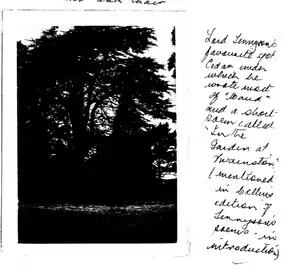 Lord Tennyson's
favourite spot
Cedar under
which he
wrote most
of "Maud"
and a short
poem called
"In the
Garden at
Swainston"
(mentioned
in Collins
edition of
Tennyson's
poems - in
introduction)